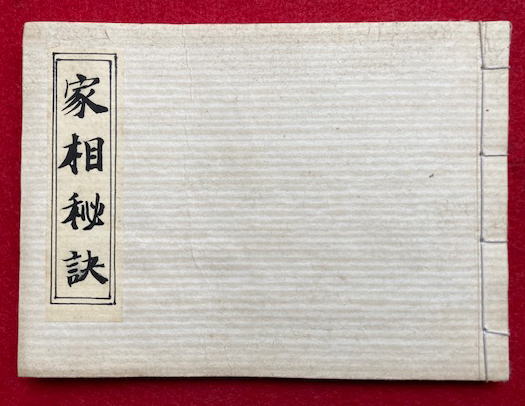 家相秘訣